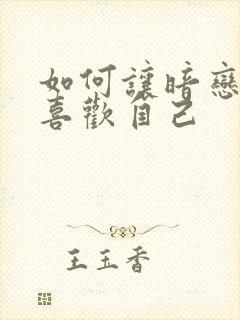 如何讓暗戀
喜歡自己
王玉香